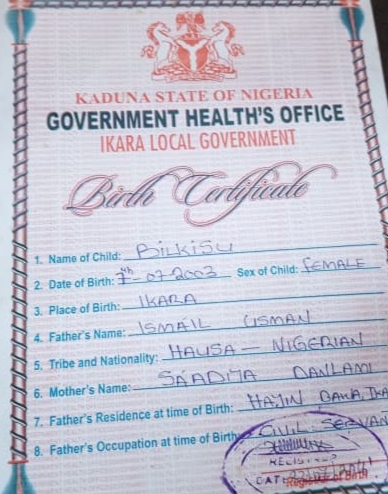 KADUNA STATE OF NIGERIA
GOVERNMENT HEALTH'S OFFICE
IKARA LOCAL GOVERNMENT
Birth Certificate
1. Name of Child: BILKISU
2. Date of Birth: 7th-07-2003 Sex of Child: FEMALE
3. Place of Birth: IKARA
4. Father's Name: ISMAIL USMAN
5. Tribe and Nationality: HAUSA - NIGERIAN
6. Mother's Name: SA'ADIJA DANLAMI
7. Father's Residence at time of Birth: HAJIN
8. Father's Occupation at time of Birth: CIVIL SERVAN
DATE
Registrar of Birth